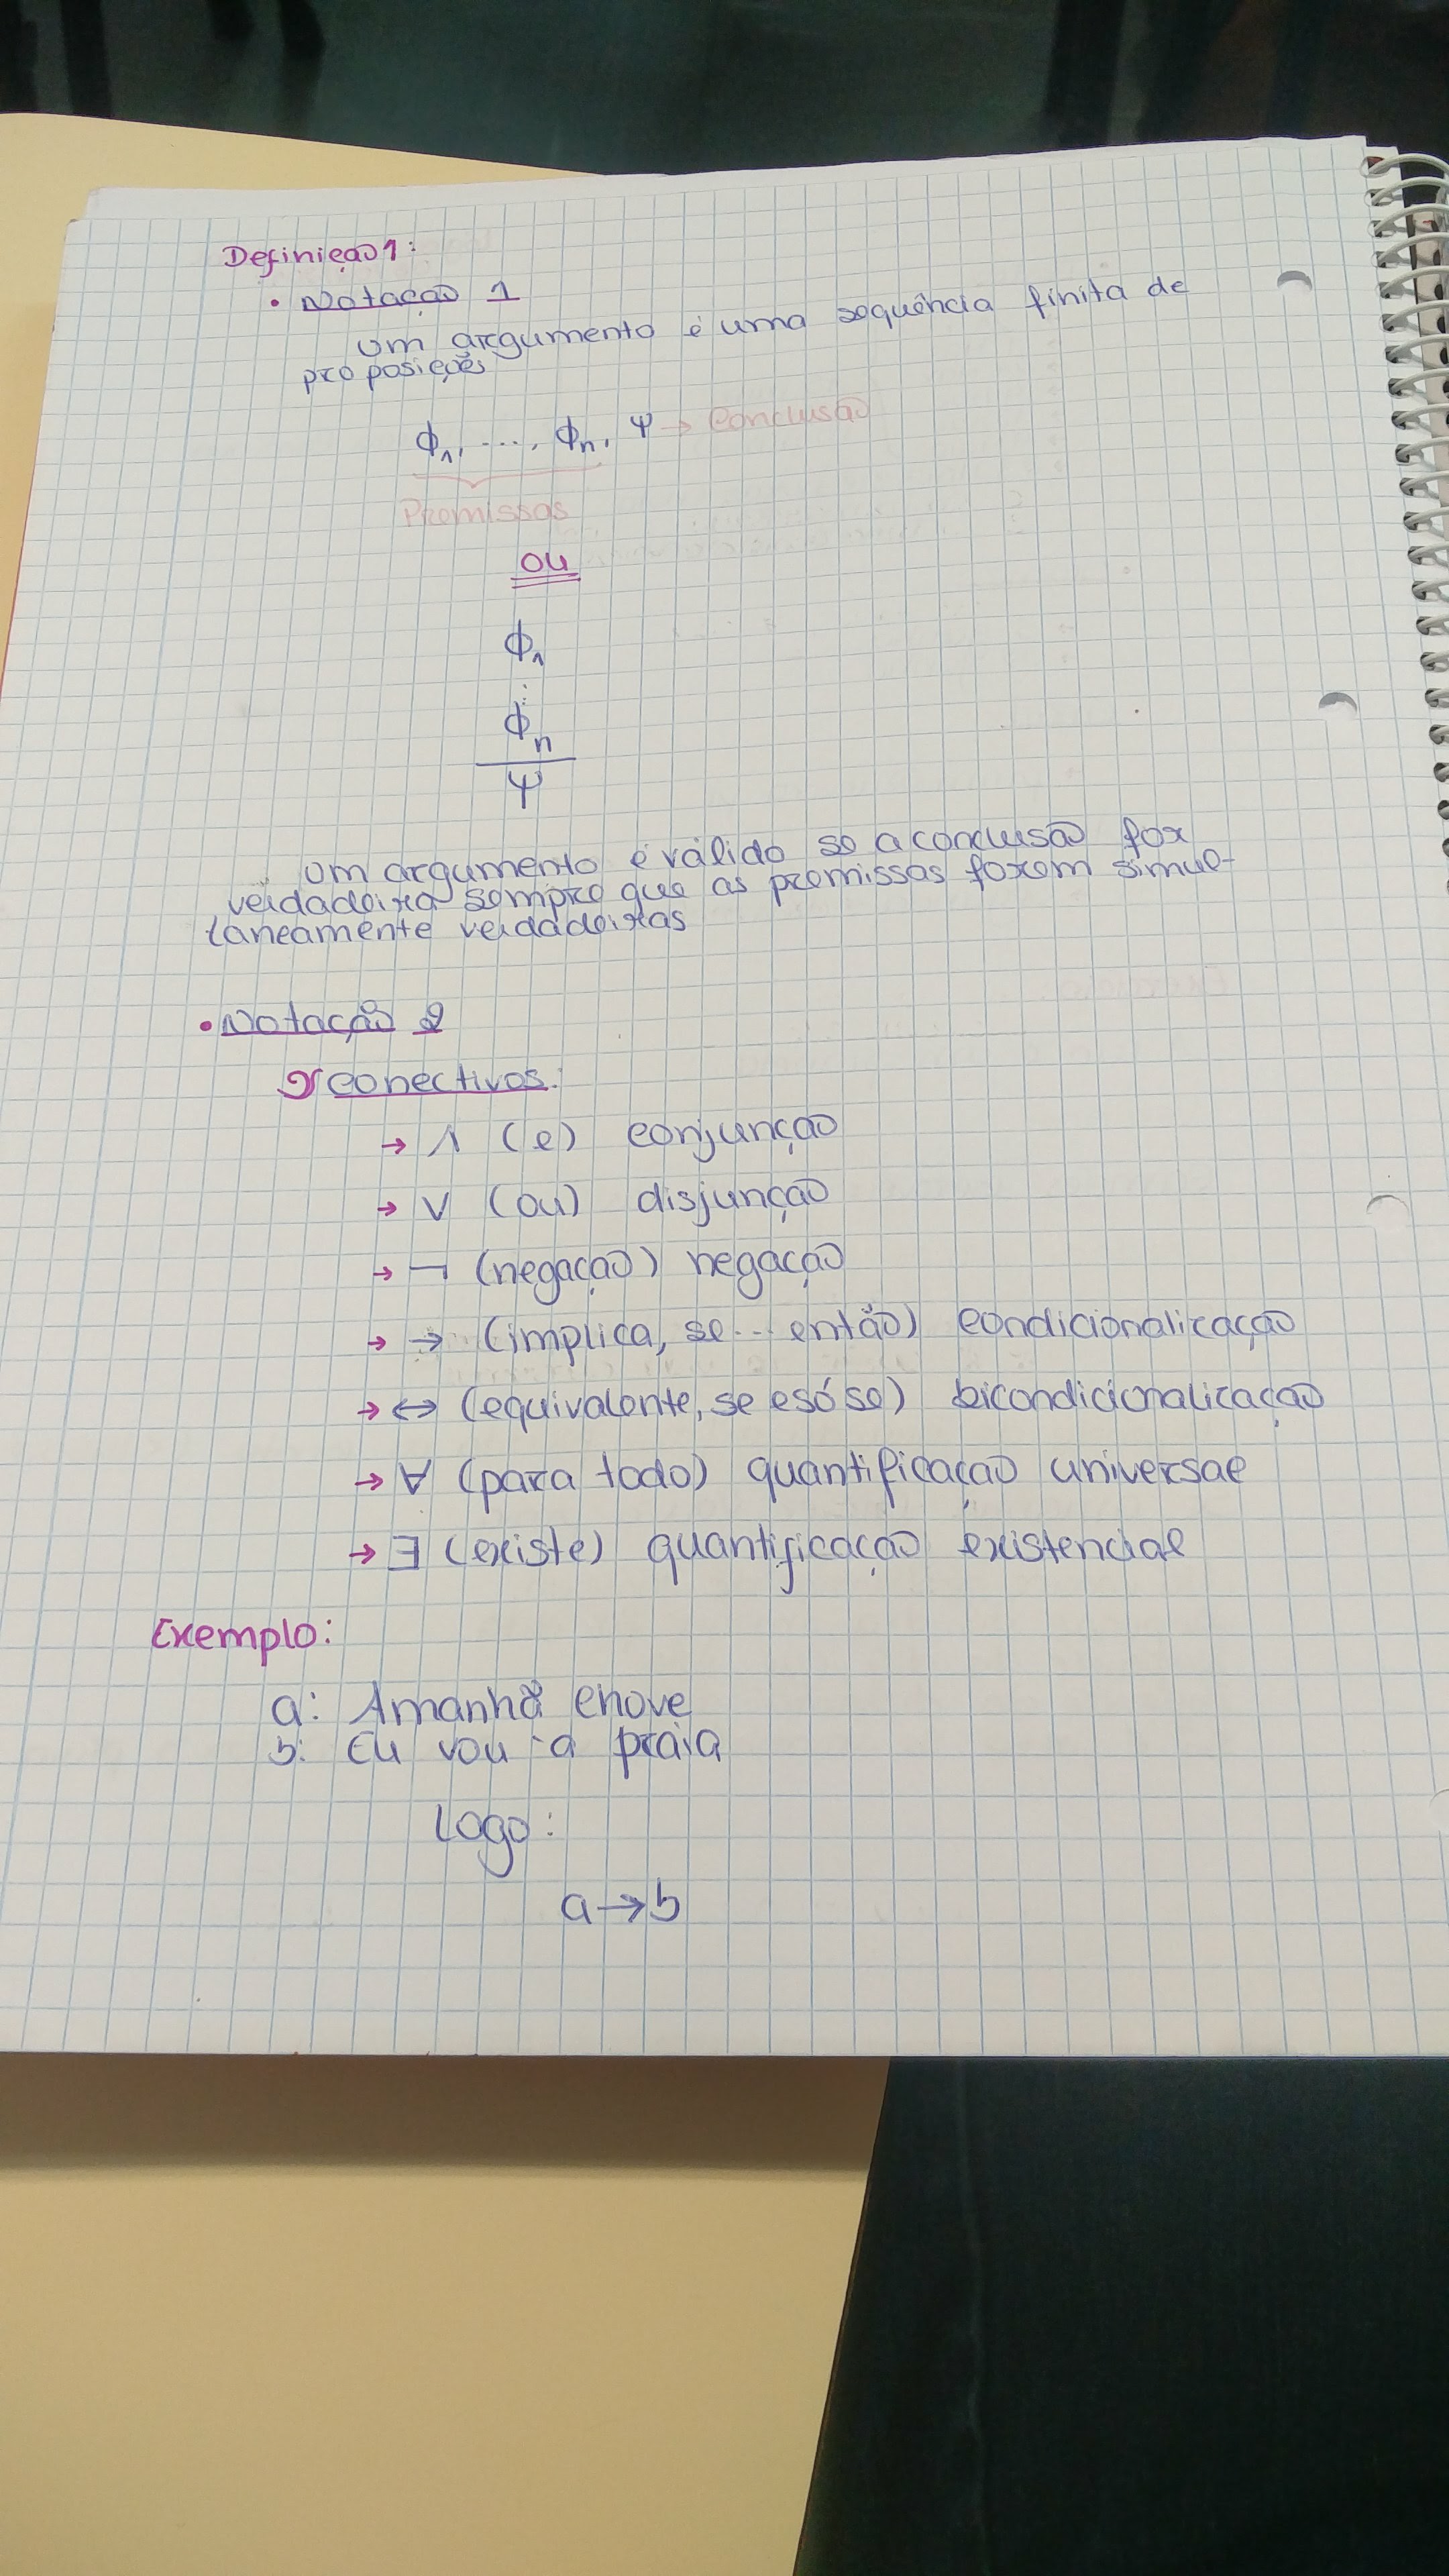 Definição 1:
• Notação 1
Um argumento é uma sequência finita de
proposições
ϕ₁, ..., ϕₙ, Ψ → Conclusão
Premissas
ou
ϕ₁
⋮
ϕₙ
Ψ
Um argumento é válido se a conclusão for
verdadeira sempre que as premissas forem simul-
taneamente verdadeiras
• Notação 2
conectivos:
→ ∧ (e) conjunção
→ ∨ (ou) disjunção
→ ¬ (negação) negação
→ → (implica, se... então) condicionalicação
→ ↔ (equivalente, se e só se) bicondicionalicação
→ ∀ (para todo) quantificação universal
→ ∃ (existe) quantificação existencial
Exemplo:
a: Amanhã chove
b: Eu vou à praia
Logo:
a → b